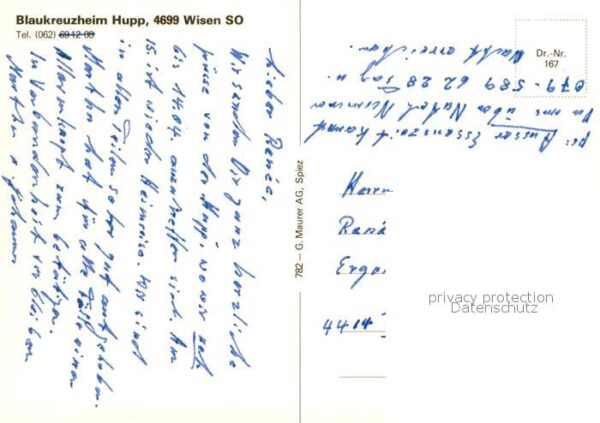 Blaukreuzheim Hupp, 4699 Wisen SO
Tel. (062) 69 12 08
Lieber René,
Wir senden Dir ganz herzliche
Grüsse von der Hupp, wo wir noch
bis 14.04. anzutreffen sind. Am
15. ist wieder Heimreise. Wir sind
in allen Teilen sehr gut aufgehoben.
Martha hat für alle Fälle einen
Alarmknopf zum betätigen.
In Verbundenheit verbleiben
Martha + Johannes
782 — G. Maurer AG, Spiez
Dr.-Nr.
167
ps: Ausser Essenszeit kannst
Du uns über Natel Nummer
079 - 589 62 28 Tag u.
Nacht erreichen.
Herrn
René
4414
privacy protection
Datenschutz